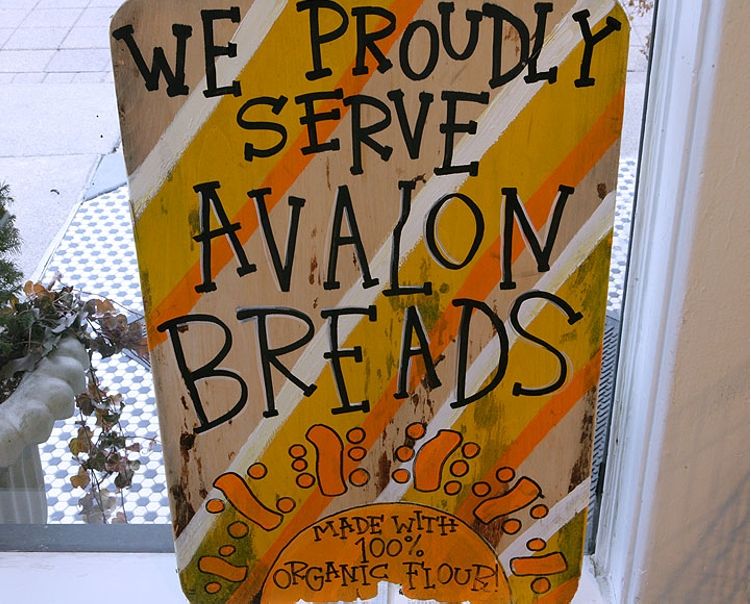 WE PROUDLY
SERVE
AVALON
BREADS
MADE WITH
100%
ORGANIC FLOUR!